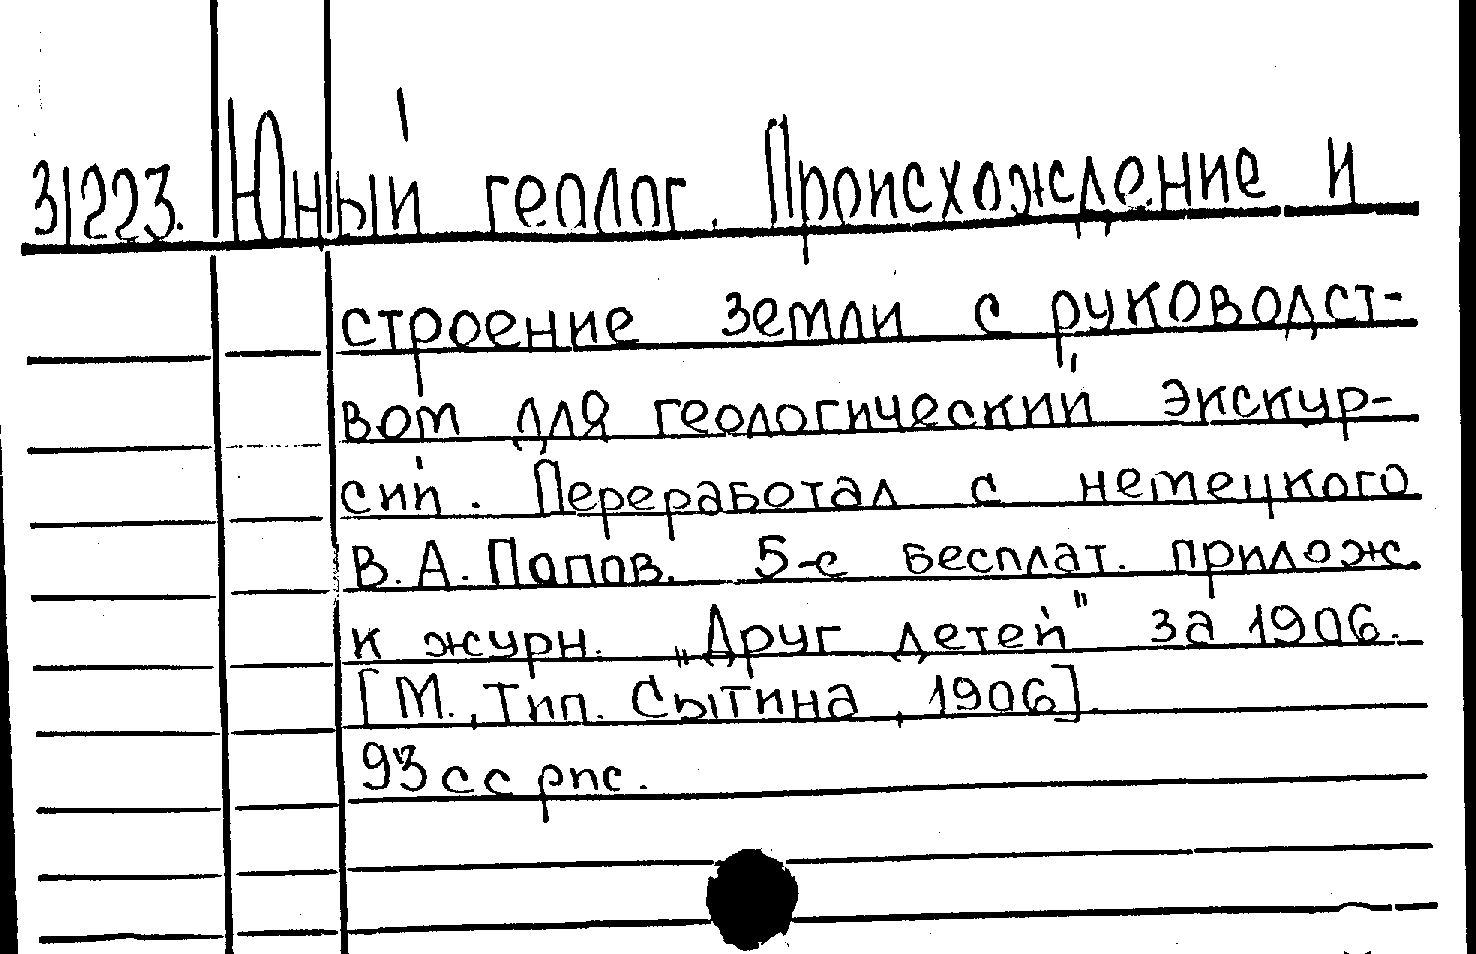 31223. Юный геолог. Происхождение и
строение земли с руководст-
вом для геологический экскур-
сий. Переработал с немецкого
В. А. Попов. 5-е бесплат. прилож.
к журн. „Друг детей" за 1906.
[М., Тип. Сытина, 1906].
93 с с рис.